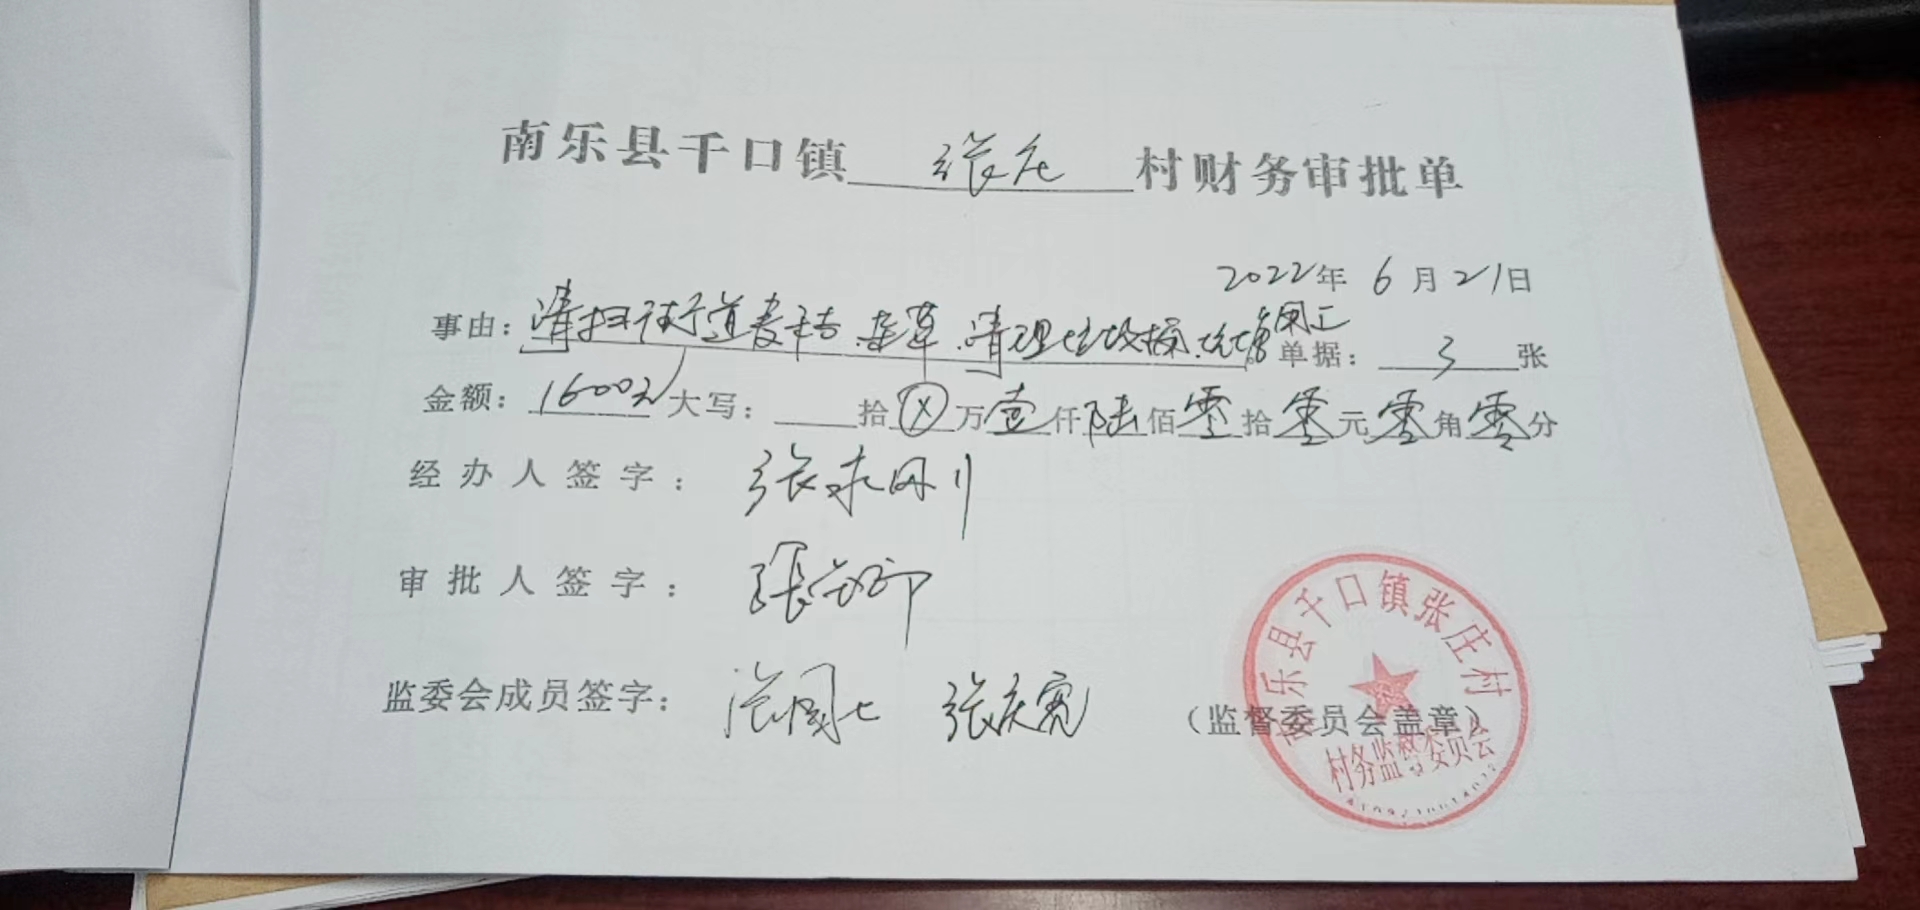 南乐县千口镇 张庄 村财务审批单
2022年 6 月 21日
事由：清扫街道麦秸、杂草、清理垃圾 坑塘 单据： 3 张
金额：1600元 大写： 拾 ⊗ 万 壹 仟 陆 佰 零 拾 零 元 零 角 零 分
经办人签字：张
审批人签字：張
监委会成员签字： 张国七 张庆宽 （监督委员会盖章）
南乐县千口镇张庄村
村务监督委员会